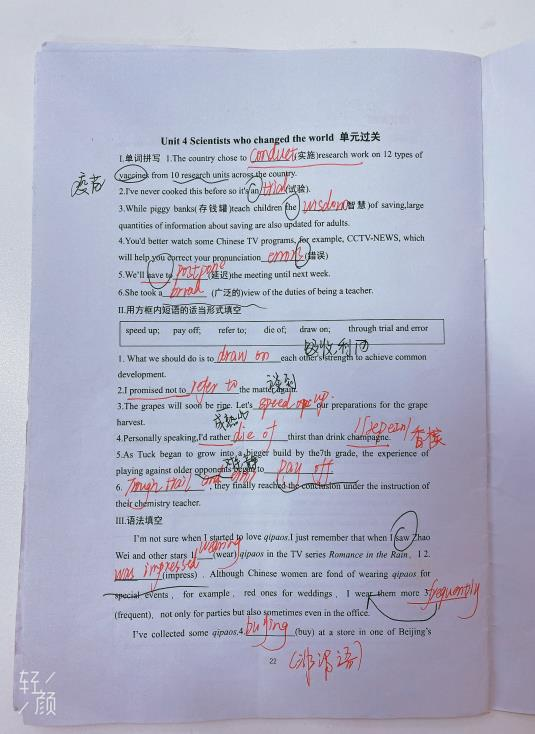 Unit 4 Scientists who changed the world 单元过关
I.单词拼写 1.The country chose to conduct(实施)research work on 12 types of
疫苗 vaccines from 10 research units across the country.
2.I've never cooked this before so it's an trial(试验).
3.While piggy banks(存钱罐)teach children the wisdom(智慧)of saving,large
quantities of information about saving are also updated for adults.
4.You'd better watch some Chinese TV programs, for example, CCTV-NEWS, which
will help you correct your pronunciation errors(错误)
5.We'll have to postpone(延迟)the meeting until next week.
6.She took a broad (广泛的)view of the duties of being a teacher.
II.用方框内短语的适当形式填空
speed up; pay off; refer to; die of; draw on; through trial and error
吸收,利用
1. What we should do is to draw on each other's strength to achieve common
development.
2.I promised not to refer to the matter again.
3.The grapes will soon be ripe. Let's speed up our preparations for the grape
harvest.
4.Personally speaking,I'd rather die of thirst than drink champagne. 香槟
5.As Tuck began to grow into a bigger build by the7th grade, the experience of
playing against older opponents began to pay off
6. , they finally reached the conclusion under the instruction of
their chemistry teacher.
III.语法填空
I'm not sure when I started to love qipaos.I just remember that when I saw Zhao
Wei and other stars 1. wearing (wear) qipaos in the TV series Romance in the Rain, I 2.
was impressed (impress) . Although Chinese women are fond of wearing qipaos for
special events, for example, red ones for weddings, I wear them more 3. frequently
(frequent), not only for parties but also sometimes even in the office.
I've collected some qipaos,4. buying (buy) at a store in one of Beijing's
22
(非谓语)
轻颜